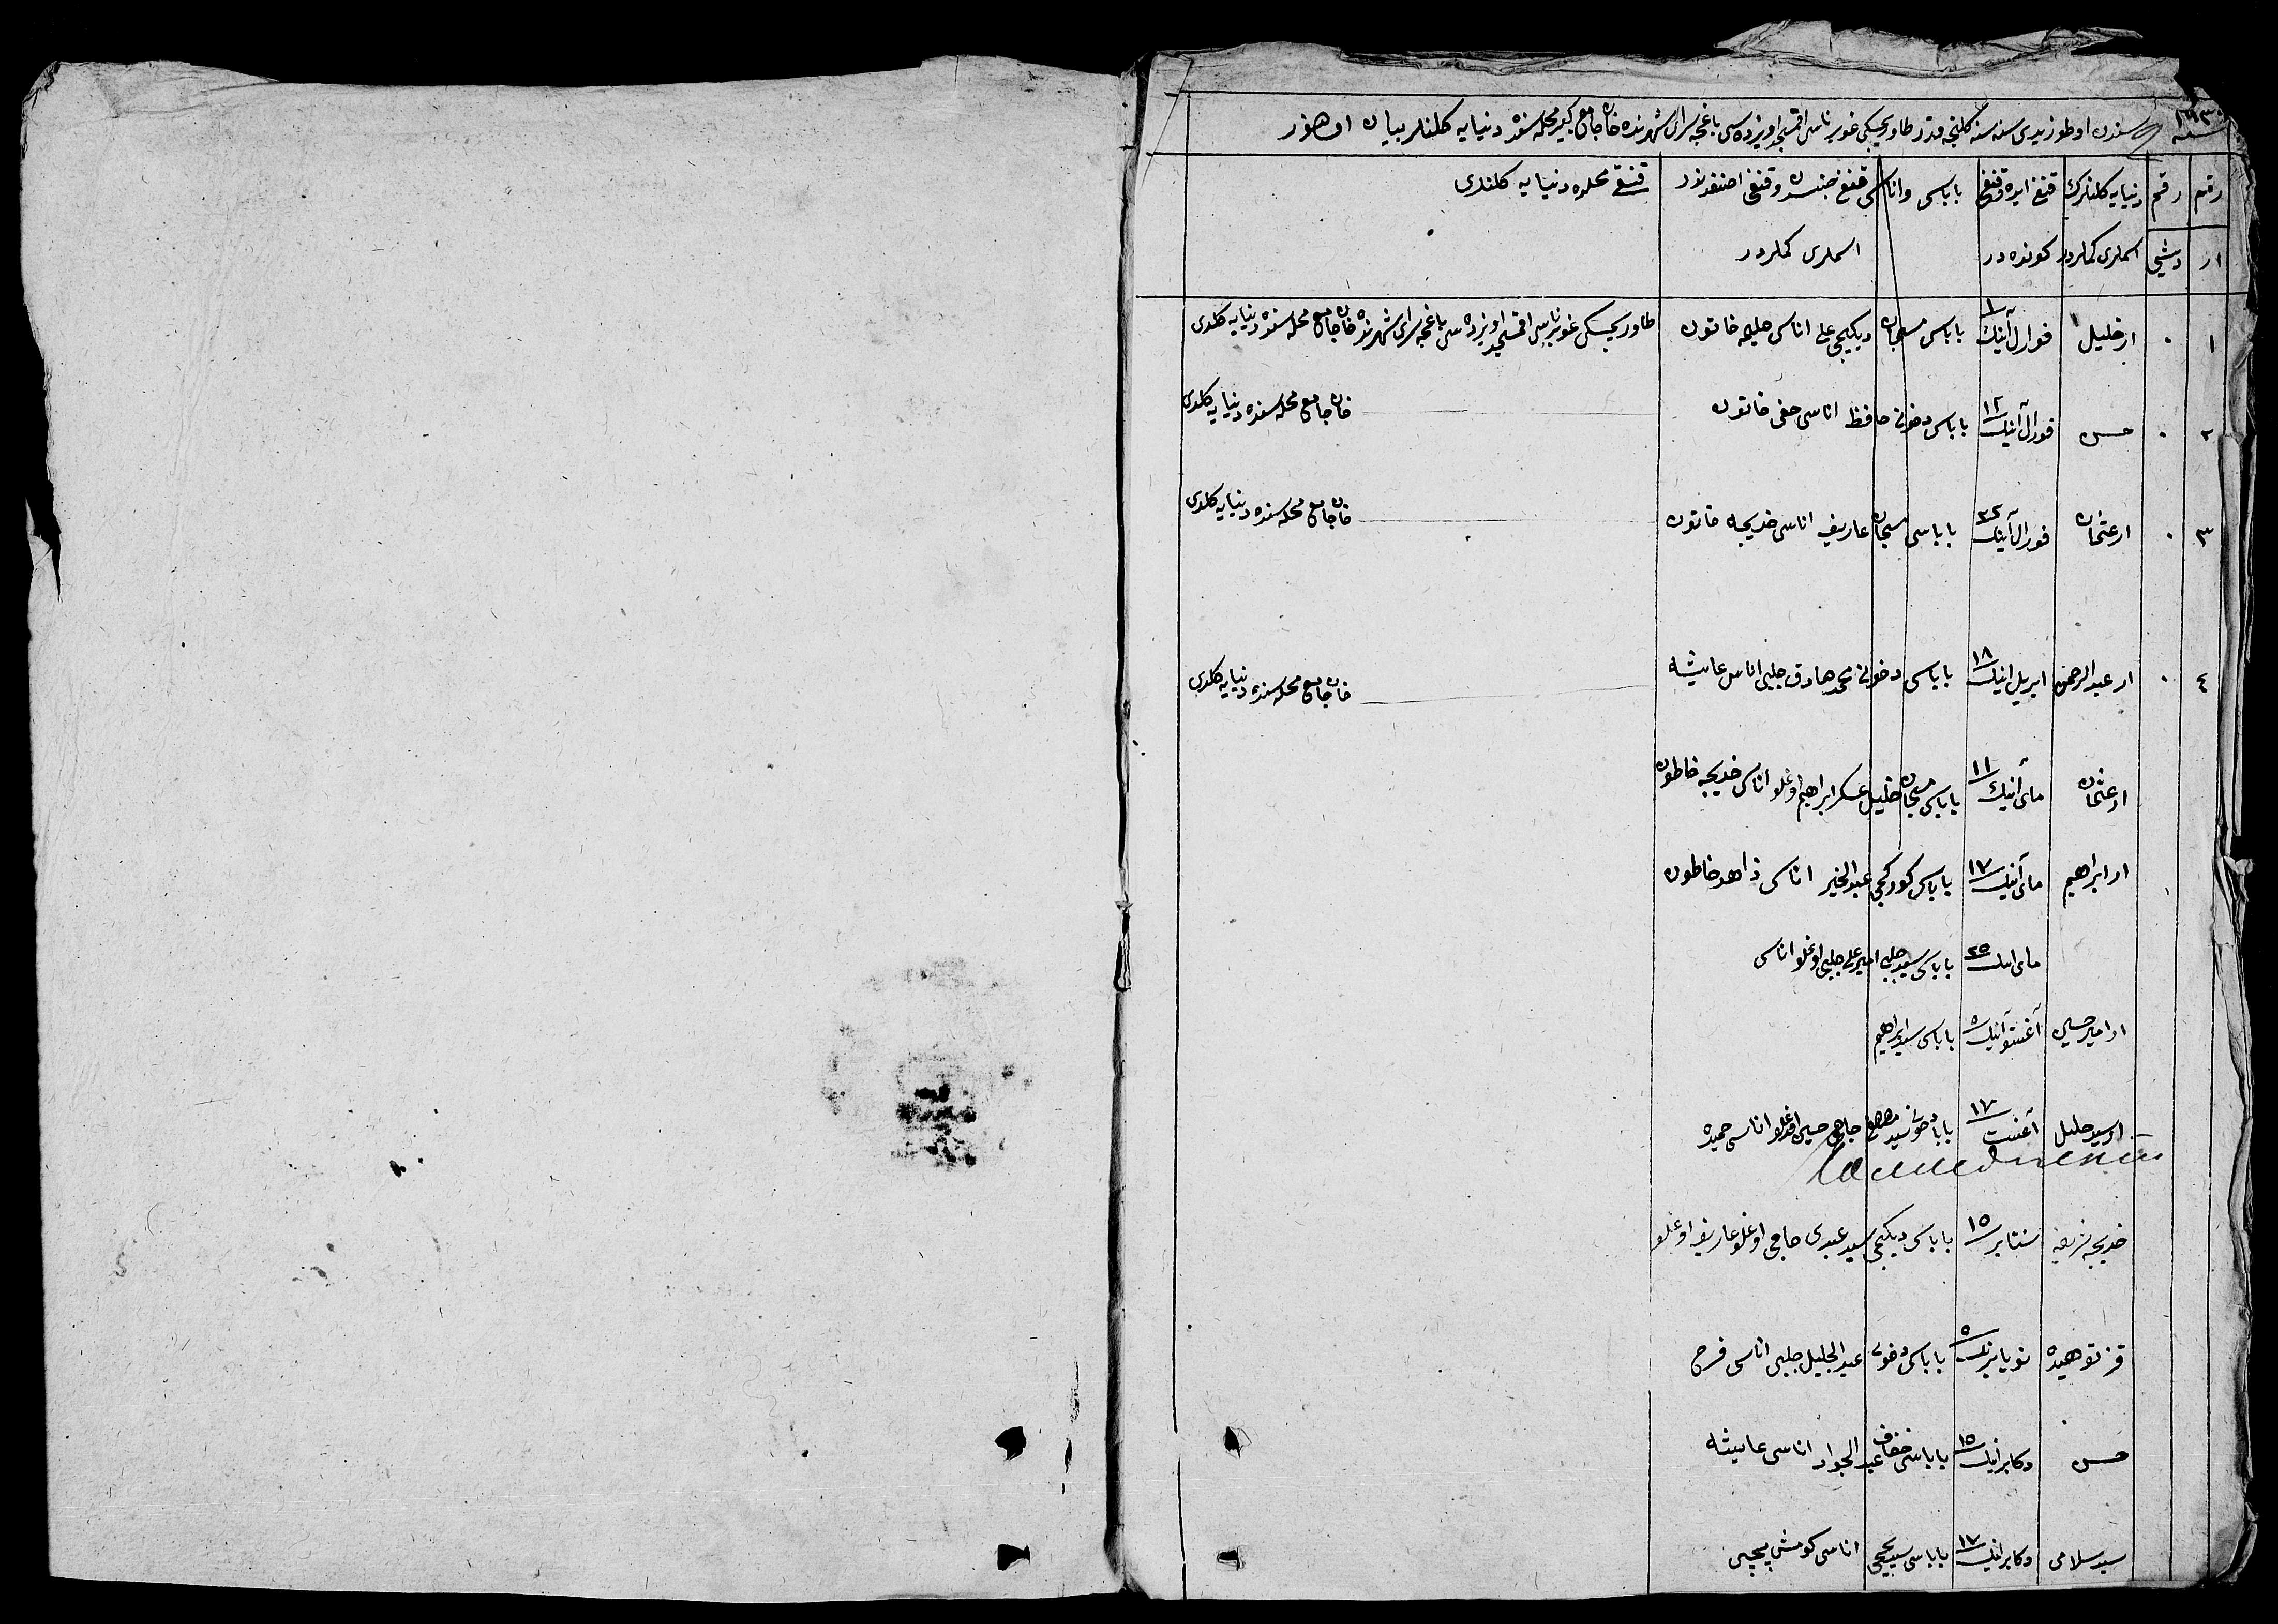 ١٨٣٠ سنه سندن اوطوز يدى سنه سنه كلنجه قدر طاوريچسكى غوبرناسى اقمسجد اويزده سى باغچه سراى شهرنده خان جامع كبير محله سنده دنيايه كلنلر بيان اولنور
رقم رقم دنيايه كلنلرك قنغى ايده قنغى باباسى واناسى قنغى جنسدن وقنغى اصنفدندر قنغى محلده دنيايه كلندى
ار ديشى اسملرى كملردر كونده در اسملرى كملردر
١ ٠ ار خليل فورال آينك ١ باباسى مسچان ديكيجى على اناسى حليمه خاتون طاوريچسكى غوبرناسى اقمسجد اويزده سى باغچه سراى شهرنده خان جامع محله سنده دنيايه كلدى
٢ ٠ حسن فورال آينك ١٢ باباسى دخونى حافظ اناسى حفى خاتون خان جامع محله سنده دنيايه كلدى
٣ ٠ ار عثمان فورال آينك ٢٢ باباسى مسچان عاريف اناسى خديجه خاتون خان جامع محله سنده دنيايه كلدى
٤ ٠ ار عبد الرحمن ابريل اينك ١٨ باباسى دخونى محمد صادق چلبى اناسى عايشه خان جامع محله سنده دنيايه كلدى
ار عثمان ماى آينك ١١ باباسى مسچان خليل عسكر ابراهيم اوغلو اناسى خديجه خاطون
ار ابراهيم ماى آينك ١٧ باباسى كوركجى عبد الخير اناسى زاهده خاطون
ماى اينك ٢٥ باباسى سيد چلبى امير على چلبى اوغلو اناسى
ار امير حسين آغستو آينك ٥ باباسى سيد ابراهيم
ار سيد جليل آغست ١٧ بابا دخونى سيد مصطفى حاجى حسين اوغلو اناسى حميده
خديجه شريفه سنتابر ١٥ باباسى ديكيجى سيد عبدى حاجى اوغلو عاريف اوغلو
قز توحيده نويابرنك ٥ باباسى دخونى عبد الجليل چلبى اناسى فرح
حسن دكابر اينك ١٥ باباسى خفاف عبد الجواد اناسى عايشه
سيد سلامى دكابر اينك ١٧ باباسى سيد يحيى اناسى كومش